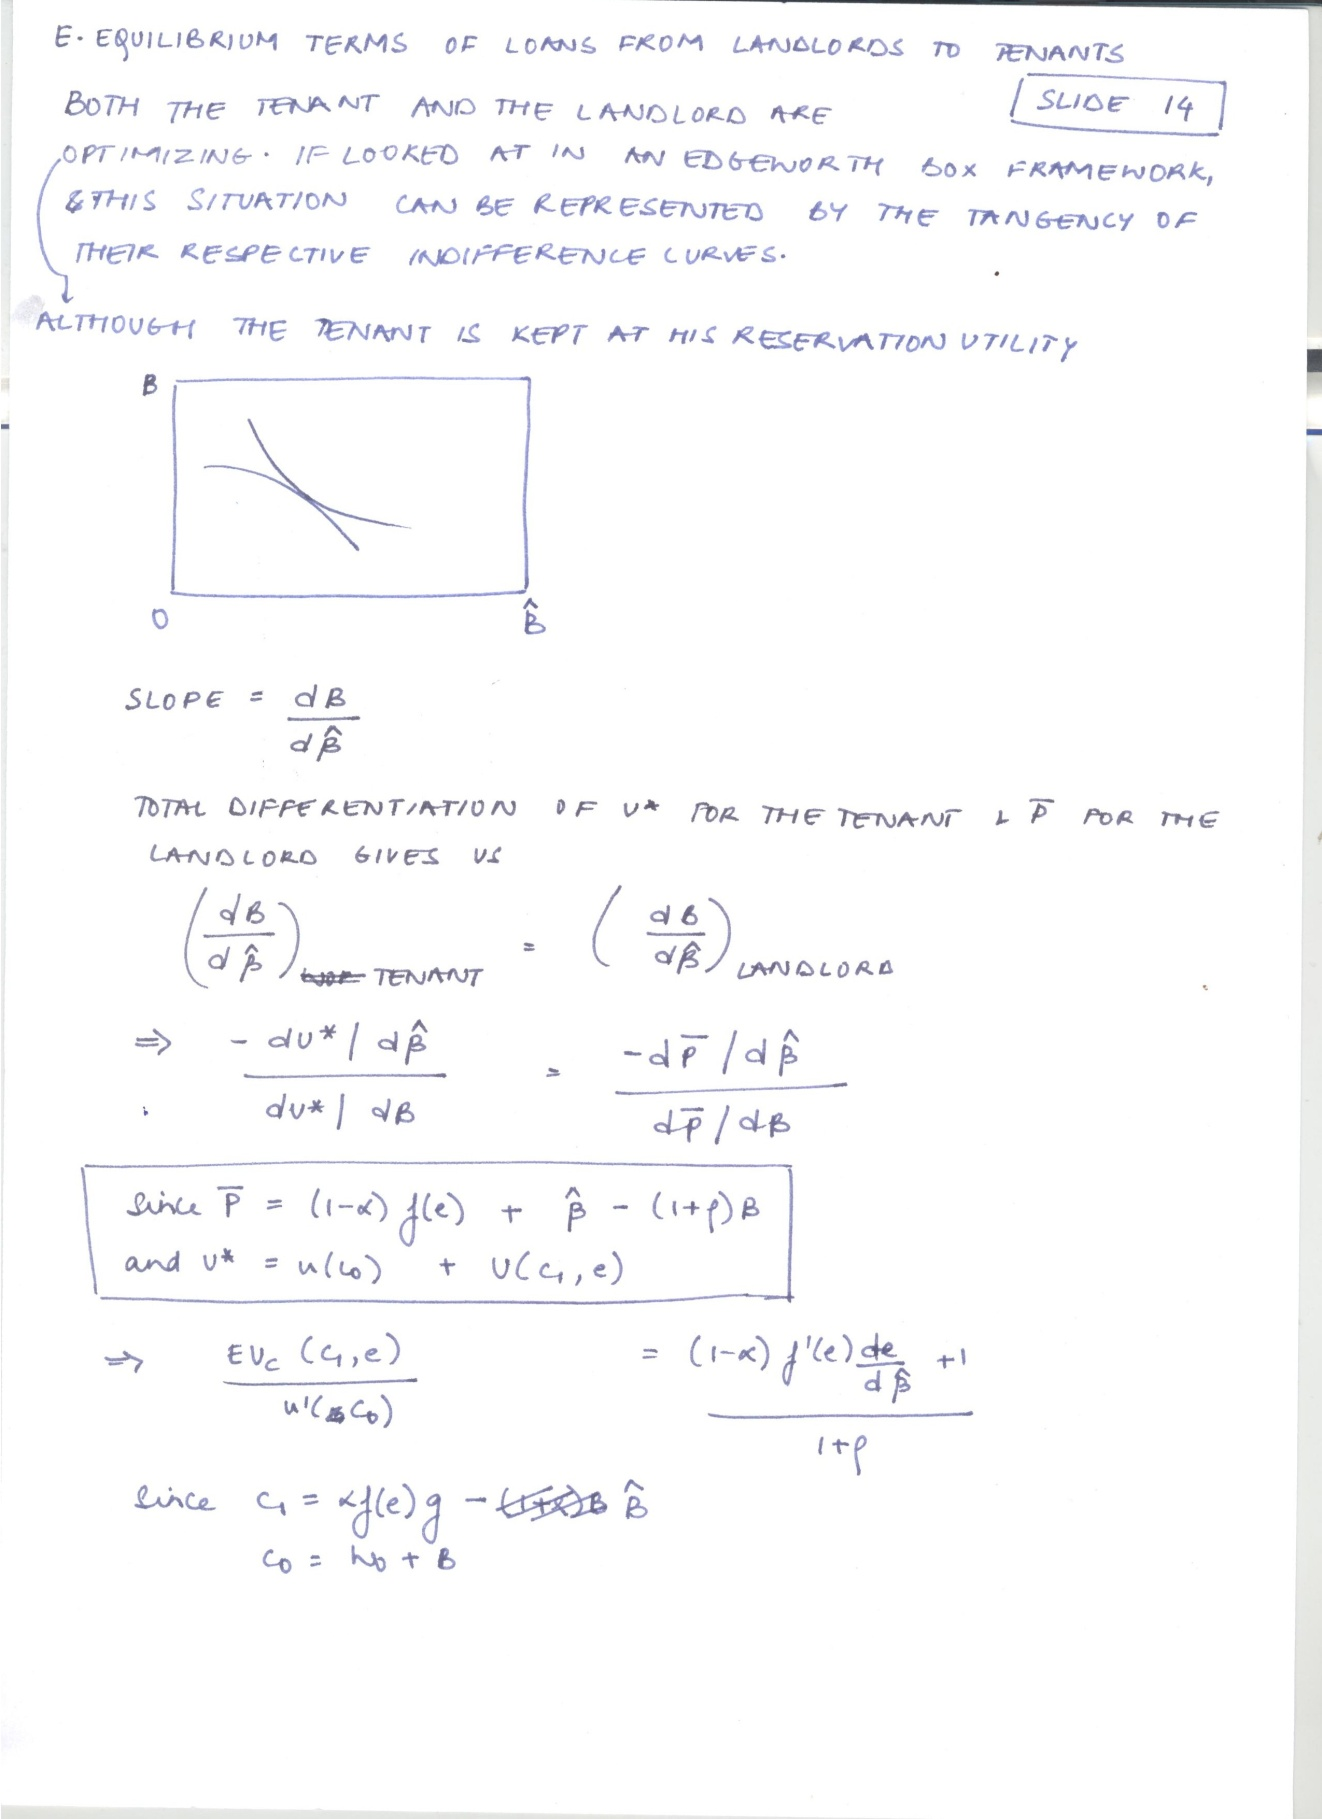 E. EQUILIBRIUM TERMS OF LOANS FROM LANDLORDS TO TENANTS
SLIDE 14
BOTH THE TENANT AND THE LANDLORD ARE
OPTIMIZING. IF LOOKED AT IN AN EDGEWORTH BOX FRAMEWORK,
& THIS SITUATION CAN BE REPRESENTED BY THE TANGENCY OF
THEIR RESPECTIVE INDIFFERENCE CURVES.
ALTHOUGH THE TENANT IS KEPT AT HIS RESERVATION UTILITY
B
O B̂
SLOPE = dB / dβ̂
TOTAL DIFFERENTIATION OF U* FOR THE TENANT & P̄ FOR THE
LANDLORD GIVES US
(dB / dβ̂) TENANT = (dB / dβ̂) LANDLORD
⇒ - dU* / dβ̂ = -dP̄ / dβ̂
dU* / dB dP̄ / dB
Since P̄ = (1-α) f(e) + β̂ - (1+ρ)B
and U* = u(c₀) + U(c₁, e)
⇒ EUc (c₁, e) = (1-α) f'(e) de/dβ̂ + 1
u'(c₀) 1+ρ
Since c₁ = αf(e)g - B̂
c₀ = w₀ + B